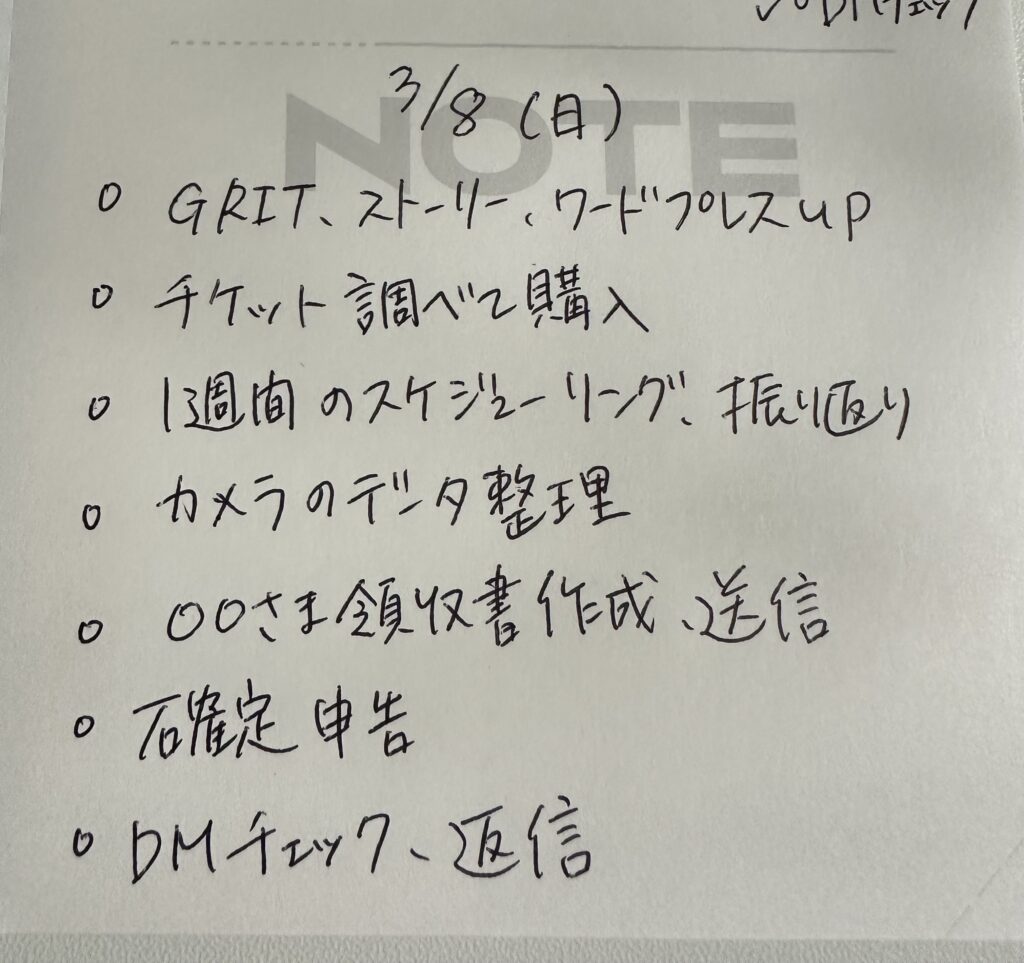 DMチェック
NOTE
3/8(日)
○ GRIT、ストーリー、ワードプレスup
○ チケット調べて購入
○ 1週間のスケジューリング、振り返り
○ カメラのデータ整理
○ 〇〇さま領収書作成、送信
○ 確定申告
○ DMチェック、返信